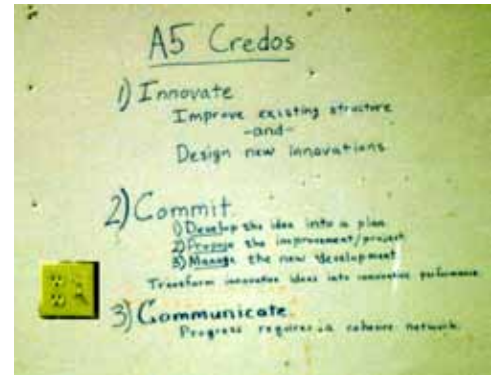 A5 Credos
1) Innovate
Improve existing structure
-and-
Design new innovations
2) Commit
1) Develop the idea into a plan
2) Propose the improvement/project
3) Manage the new development
Transform innovative ideas into innovative performance.
3) Communicate
Progress requires a network.